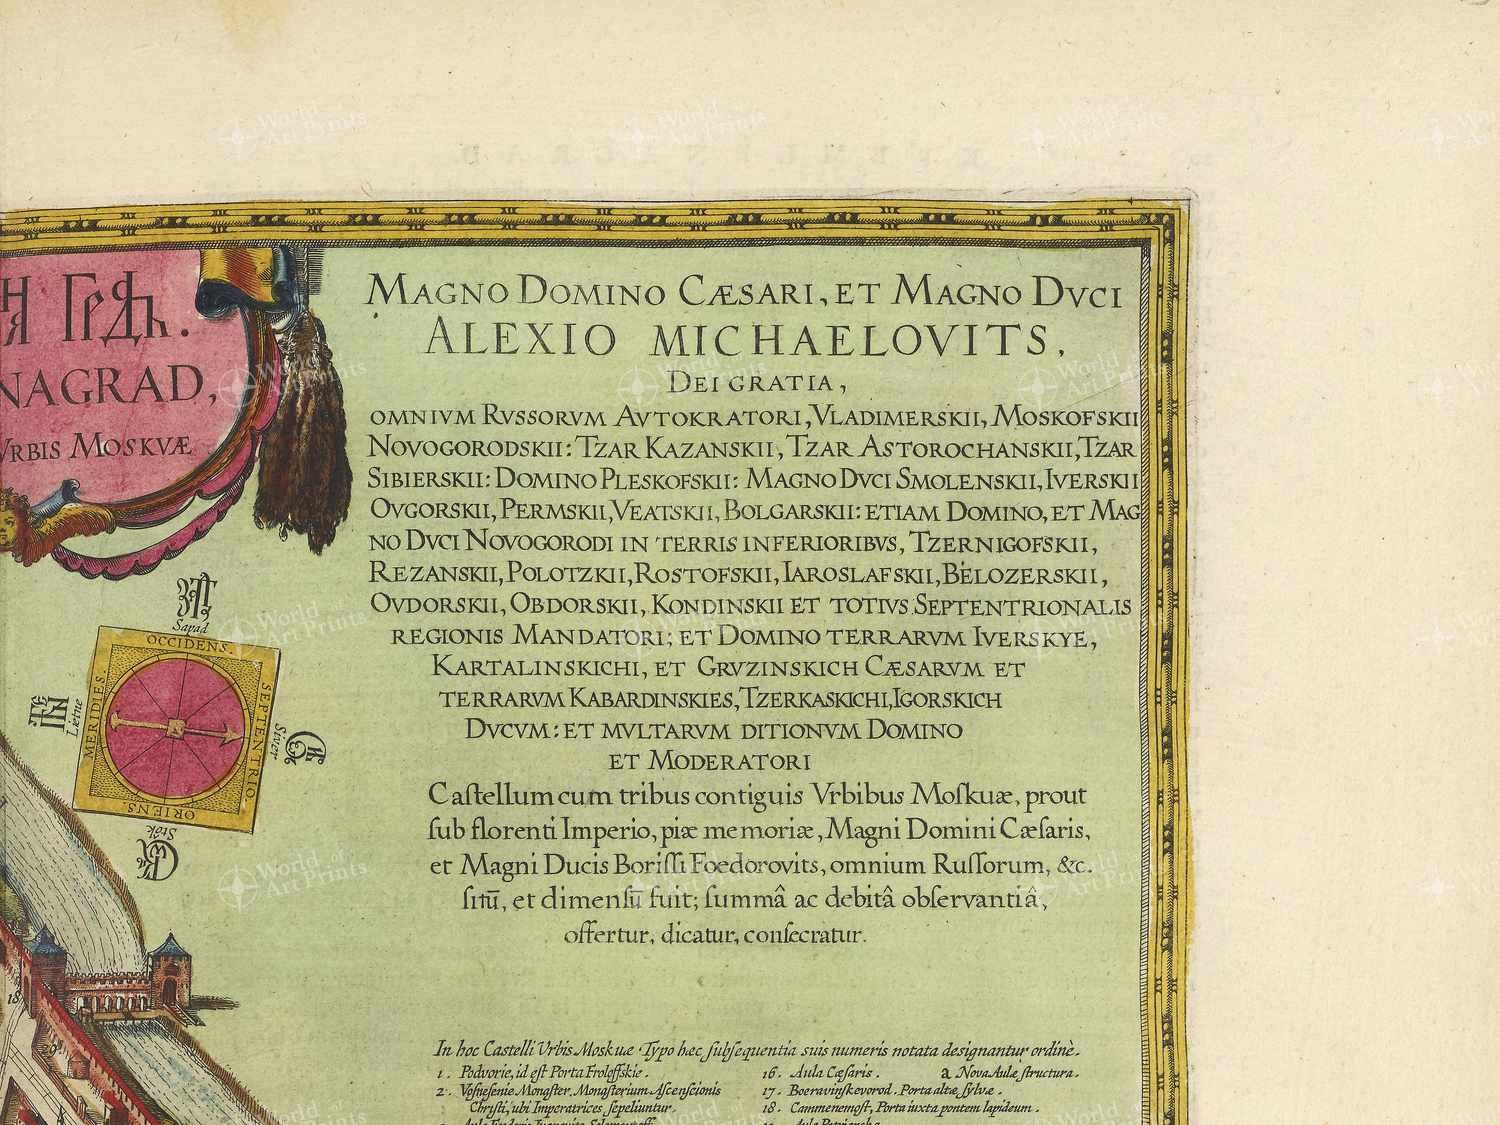 Гра́дъ.
NAGRAD,
VRBIS MOSKVÆ
MAGNO DOMINO CÆSARI, ET MAGNO DVCI
ALEXIO MICHAELOVITS,
DEI GRATIA,
OMNIVM RVSSORVM AVTOKRATORI, VLADIMERSKII, MOSKOFSKII
NOVOGORODSKII: TZAR KAZANSKII, TZAR ASTOROCHANSKII, TZAR
SIBIERSKII: DOMINO PLESKOFSKII: MAGNO DVCI SMOLENSKII, IVERSKII
OVGORSKII, PERMSKII, VEATSKII, BOLGARSKII: ETIAM DOMINO, ET MAG
NO DVCI NOVOGORODI IN TERRIS INFERIORIBVS, TZERNIGOFSKII,
REZANSKII, POLOTZKII, ROSTOFSKII, IAROSLAFSKII, BELOZERSKII,
OVDORSKII, OBDORSKII, KONDINSKII ET TOTIVS SEPTENTRIONALIS
REGIONIS MANDATORI; ET DOMINO TERRARVM IVERSKYE,
KARTALINSKICHI, ET GRVZINSKICH CÆSARVM ET
TERRARVM KABARDINSKIES, TZERKASKICHI, IGORSKICH
DVCVM: ET MVLTARVM DITIONVM DOMINO
ET MODERATORI
Caſtellum cum tribus contiguis Vrbibus Moſkuæ, prout
ſub florenti Imperio, piæ memoriæ, Magni Domini Cæſaris,
et Magni Ducis Boriſſi Foedorovits, omnium Ruſſorum, &c.
ſitū, et dimenſū fuit; ſummâ ac debitâ obſervantiâ,
offertur, dicatur, conſecratur.
Sapad
OCCIDENS.
MERIDIES.
Lietne
SEPTENTRIO
Siver
ORIENS.
Stôk
18
29
In hoc Castelli Vrbis Moskuæ Typo hæc ſubſequentia suis numeris notata designantur ordinè.
1. Podvorie, id eſt Porta Froloffskie.
2. Voſneſenie Monaſter. Monaſterium Aſcenſcionis
Chriſti, ubi Imperatrices ſepeliuntur.
16. Aula Cæſaris. a Nova Aulæ ſtructura.
17. Boeravinſkevorod. Porta altæ ſylvæ.
18. Cammenemoſt, Porta iuxta pontem lapideum.
World of
Art Prints